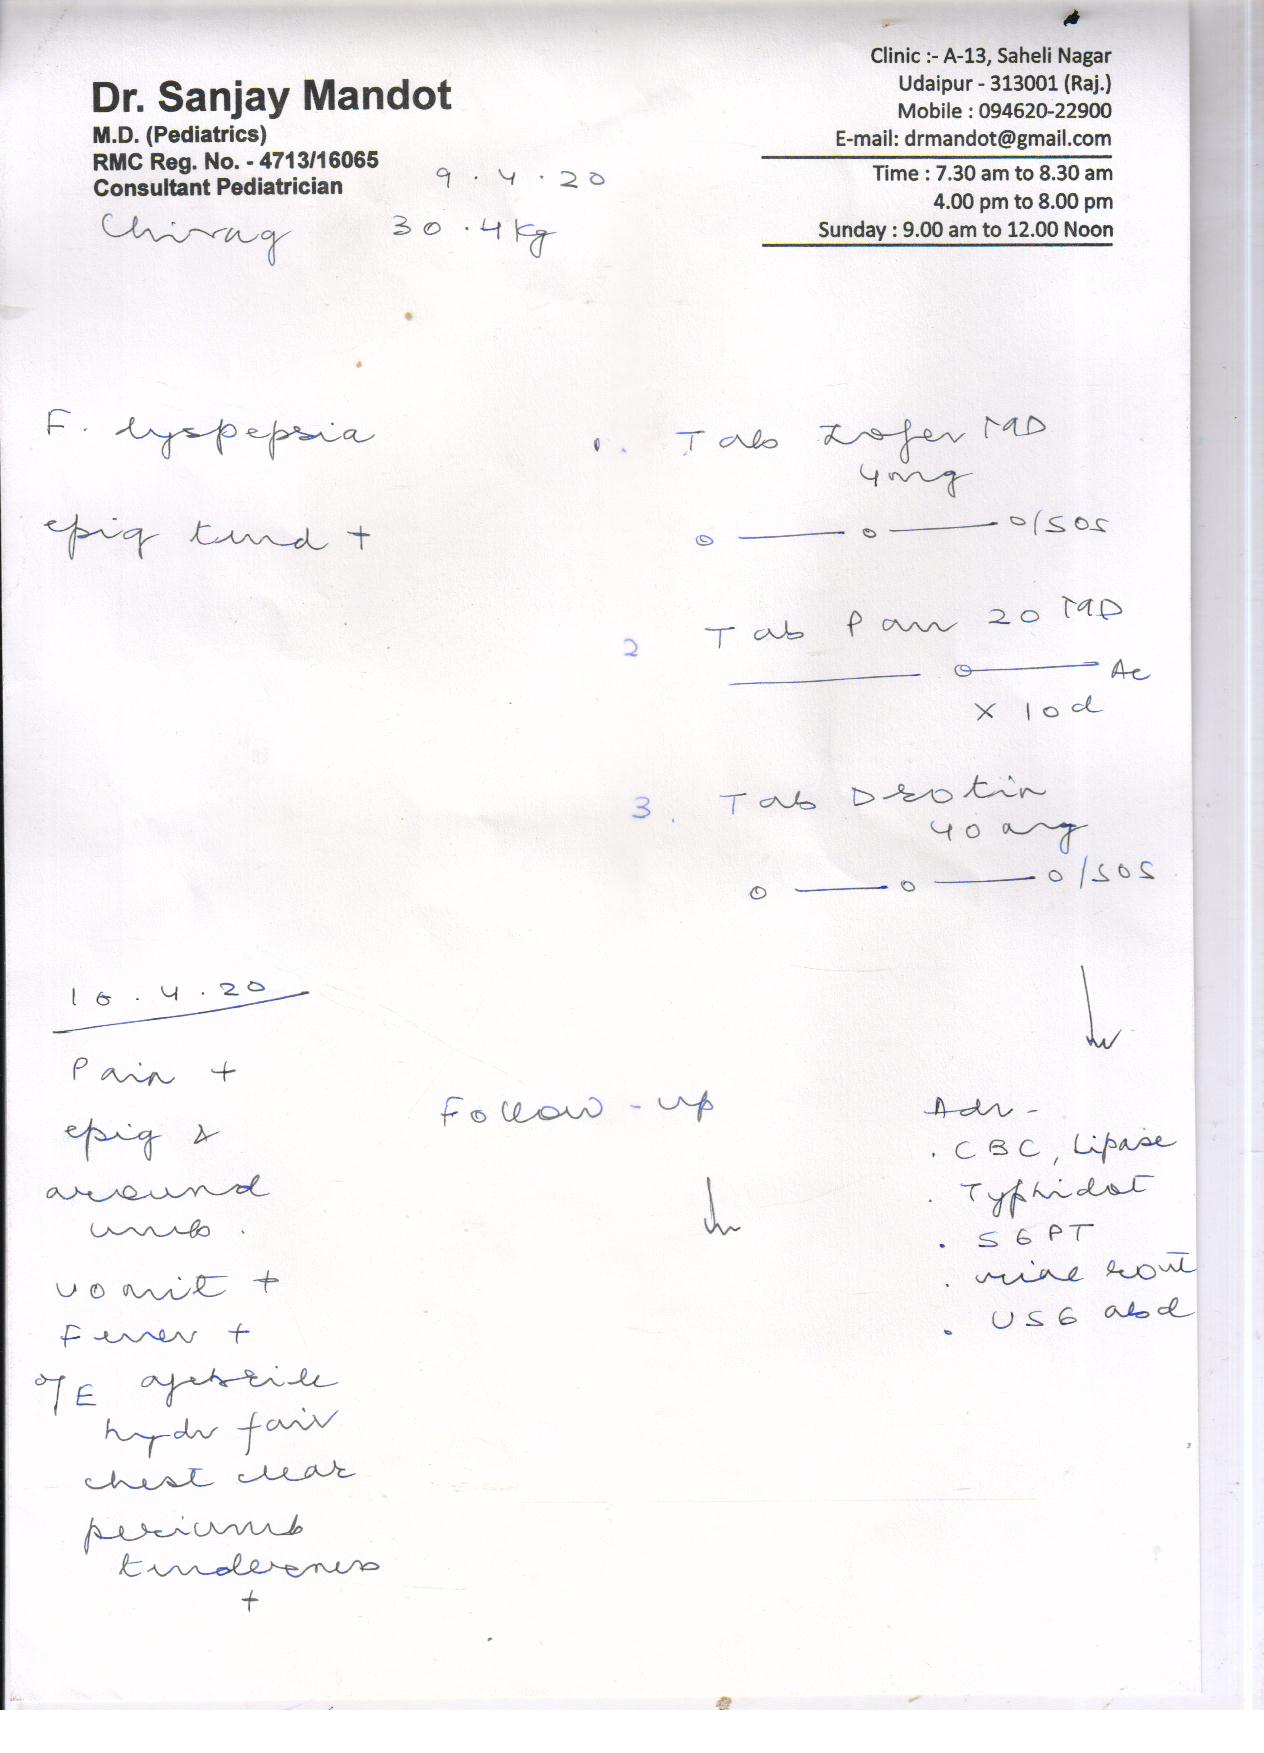 Dr. Sanjay Mandot
M.D. (Pediatrics)
RMC Reg. No. - 4713/16065
Consultant Pediatrician
Clinic :- A-13, Saheli Nagar
Udaipur - 313001 (Raj.)
Mobile : 094620-22900
E-mail: drmandot@gmail.com
Time : 7.30 am to 8.30 am
4.00 pm to 8.00 pm
Sunday : 9.00 am to 12.00 Noon
9.4.20
Chirag 30.4 kg
F. dyspepsia
epig tend +
1. Tab Zofer MD
4mg
o — o — o/SOS
2 Tab Pan 20 MD
— o — Ac
x 10d
3. Tab Drotin
40 mg
o — o — o/SOS
10.4.20
Pain +
epig &
around
umb.
vomit +
Fever +
O/E afebrile
hydr fair
chest clear
periumb
tenderness
+
Follow-up
Adv -
. CBC, Lipase
. Typhidot
. SGPT
. urine rout
. USG abd